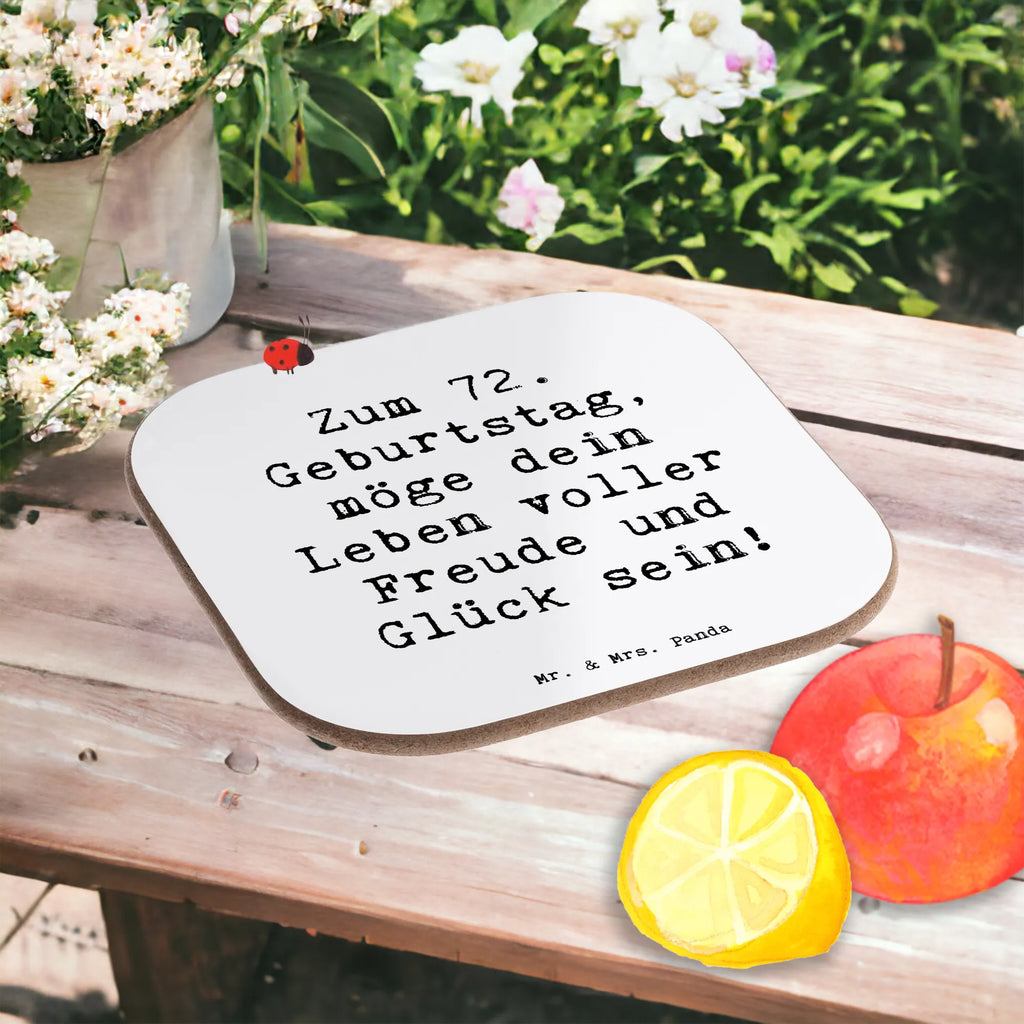 Zum 72.
Geburtstag,
möge dein
Leben voller
Freude und
Glück sein!
Mr. & Mrs. Panda